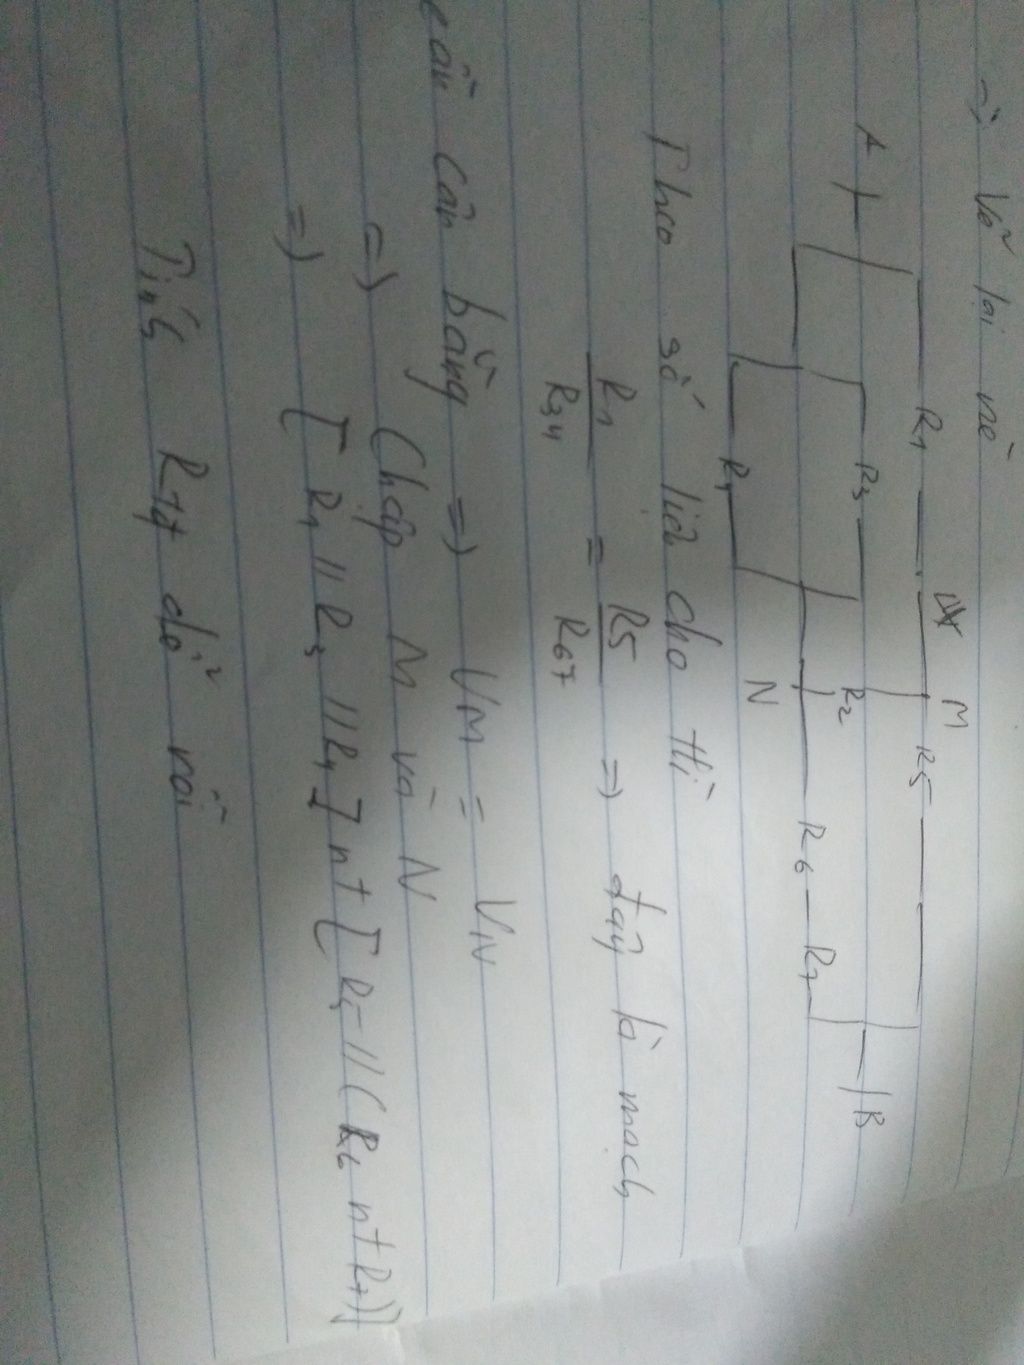 Vẽ lại nè
R1 M R5
A R3 R2 B
R4 N R6 R7
Theo số liệu cho thì
R1/R34 = R5/R67 => đây là mạch
cầu cân bằng => VM = VN
=> Chập M và N
=> [R1 // R3 // R4] nt [R5 // (R6 nt R7)]
Tính Rtđ dc rồi